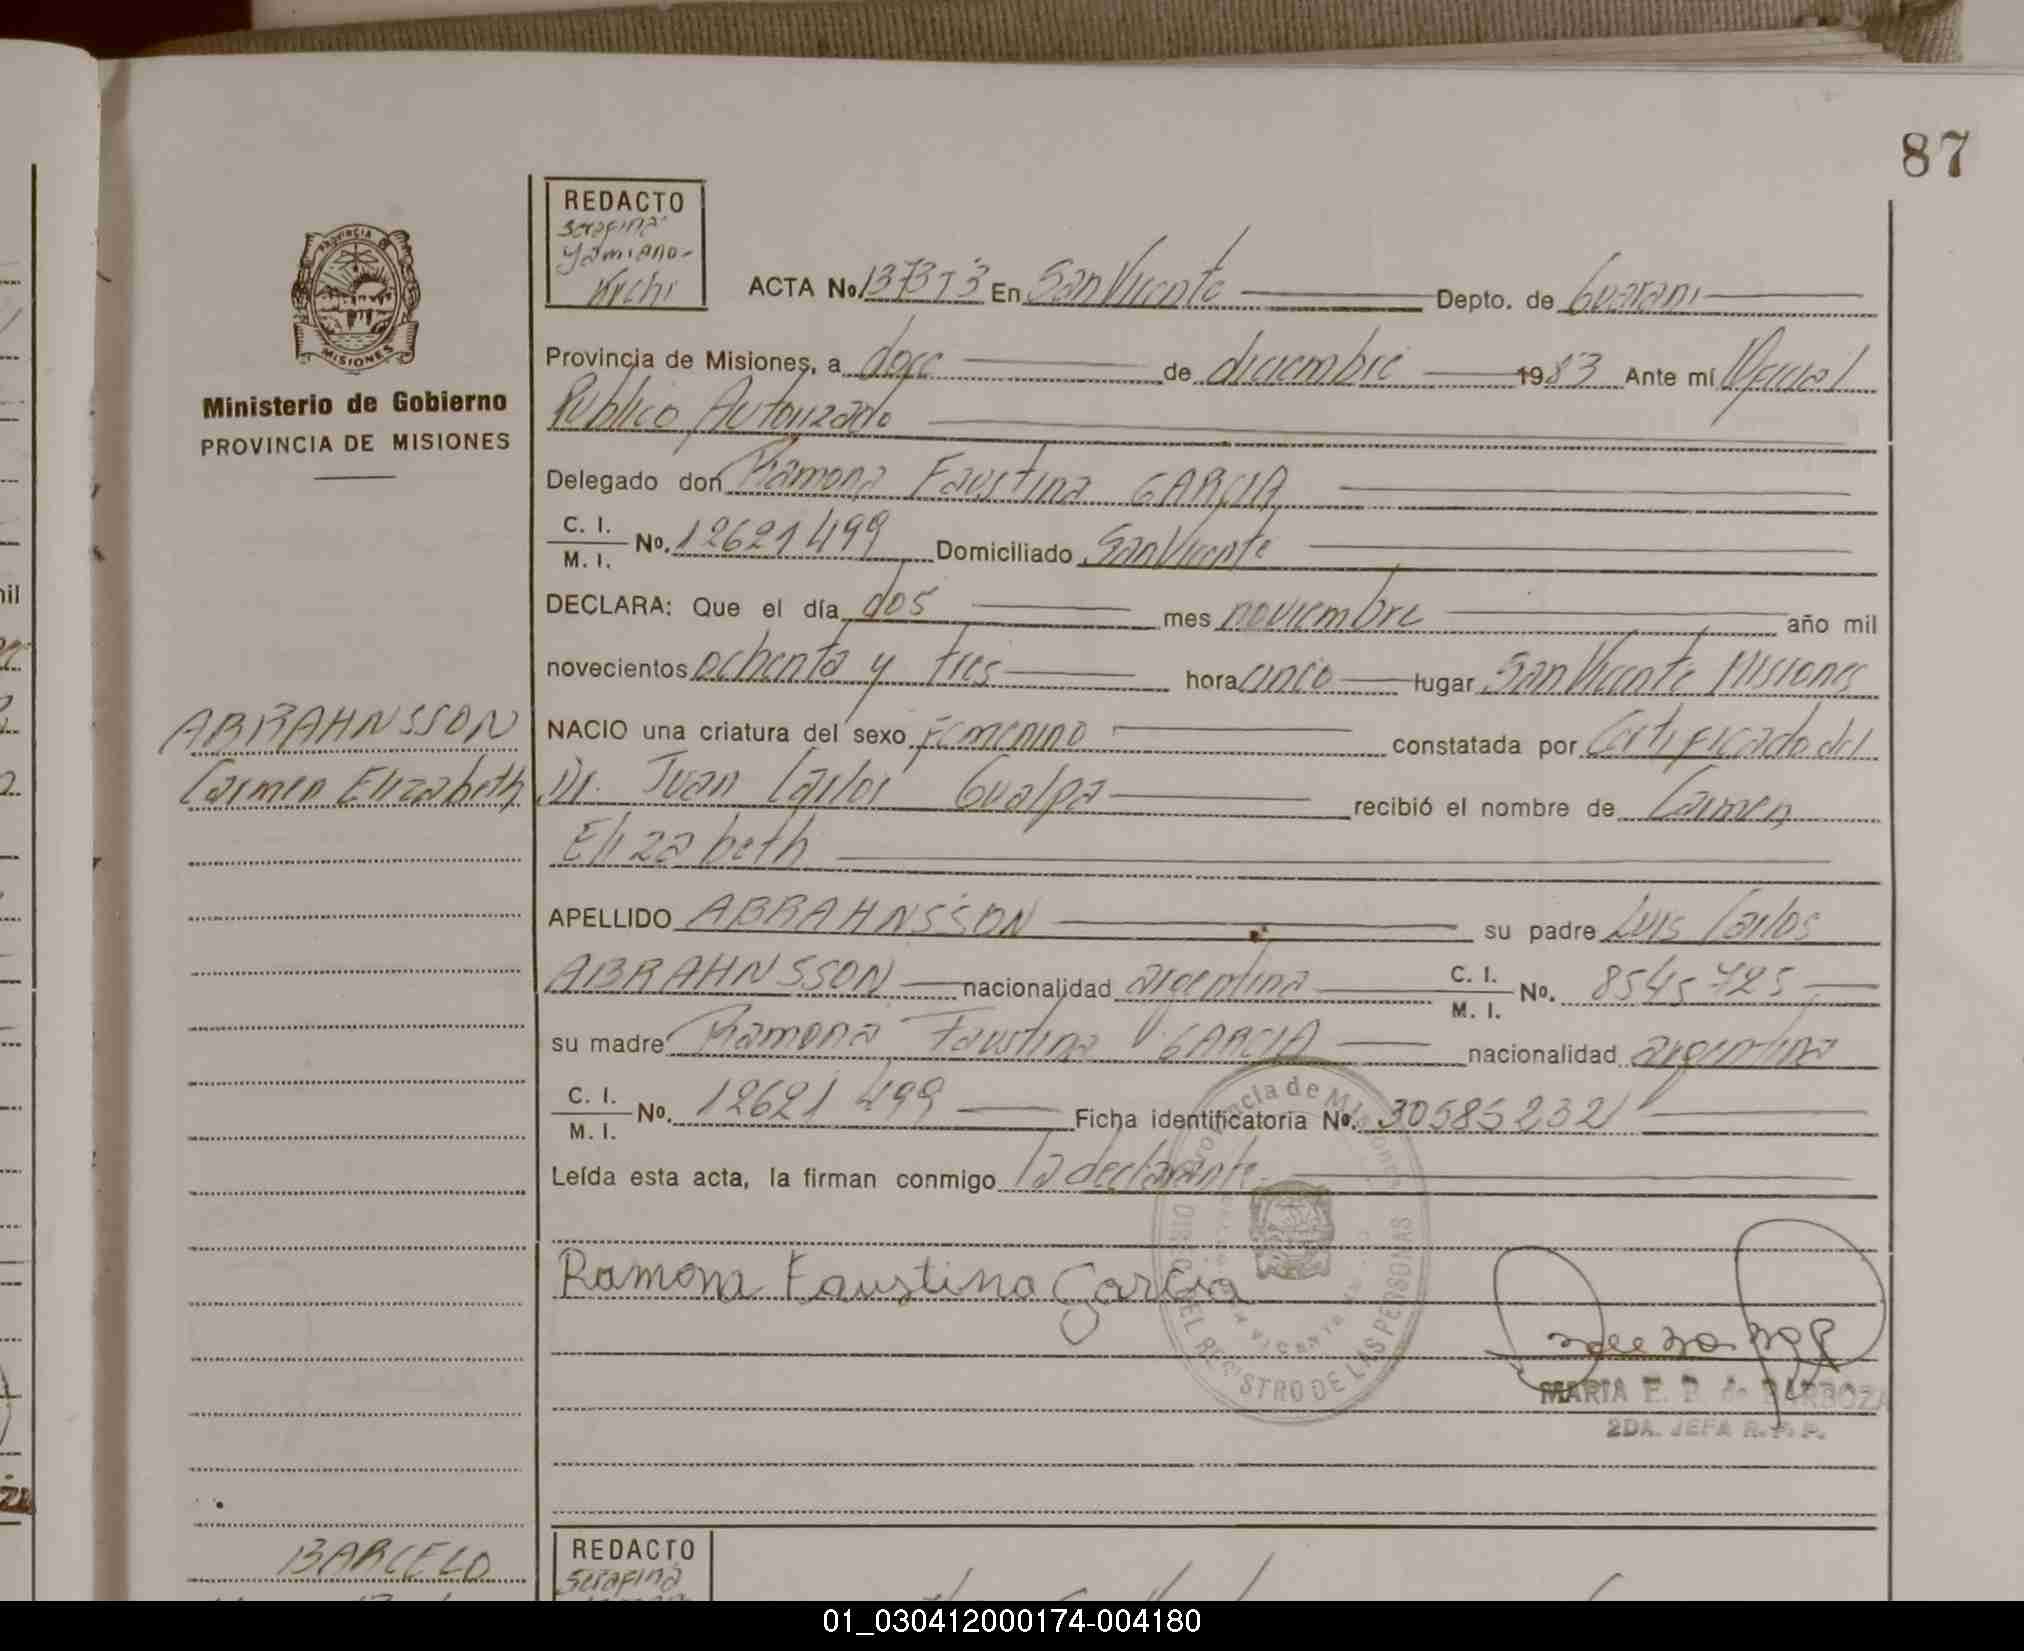 87
REDACTO
Serafina
Yamiano-
PROVINCIA DE
MISIONES
Ministerio de Gobierno
PROVINCIA DE MISIONES
ACTA No. 137373 En San Vicente Depto. de Guarani
Provincia de Misiones, a doce de diciembre 1983 Ante mí Oficial
Publico Autorizado
Delegado don Ramona Faustina GARCIA
C. I. / M. I. No. 12621499 Domiciliado San Vicente
DECLARA: Que el día dos mes noviembre año mil
novecientos ochenta y tres hora cinco lugar San Vicente Misiones
NACIO una criatura del sexo femenino constatada por Certificado del
Dr. Juan Carlos Gualpa recibió el nombre de Carmen
Elizabeth
APELLIDO ABRAHNSSON su padre Luis Carlos
ABRAHNSSON nacionalidad argentina C. I. / M. I. No. 8545725
su madre Ramona Faustina GARCIA nacionalidad argentina
C. I. / M. I. No. 12621499 Ficha identificatoria No. 30585232
Leída esta acta, la firman conmigo la declarante
Ramona Faustina Garcia
Provincia de Misiones
DIREC. DEL REGISTRO DE LAS PERSONAS
MARIA E. P. de BARBOZA
2DA. JEFA R. P. P.
ABRAHNSSON
Carmen Elizabeth
BARCELO
REDACTO
Serafina
01_030412000174-004180